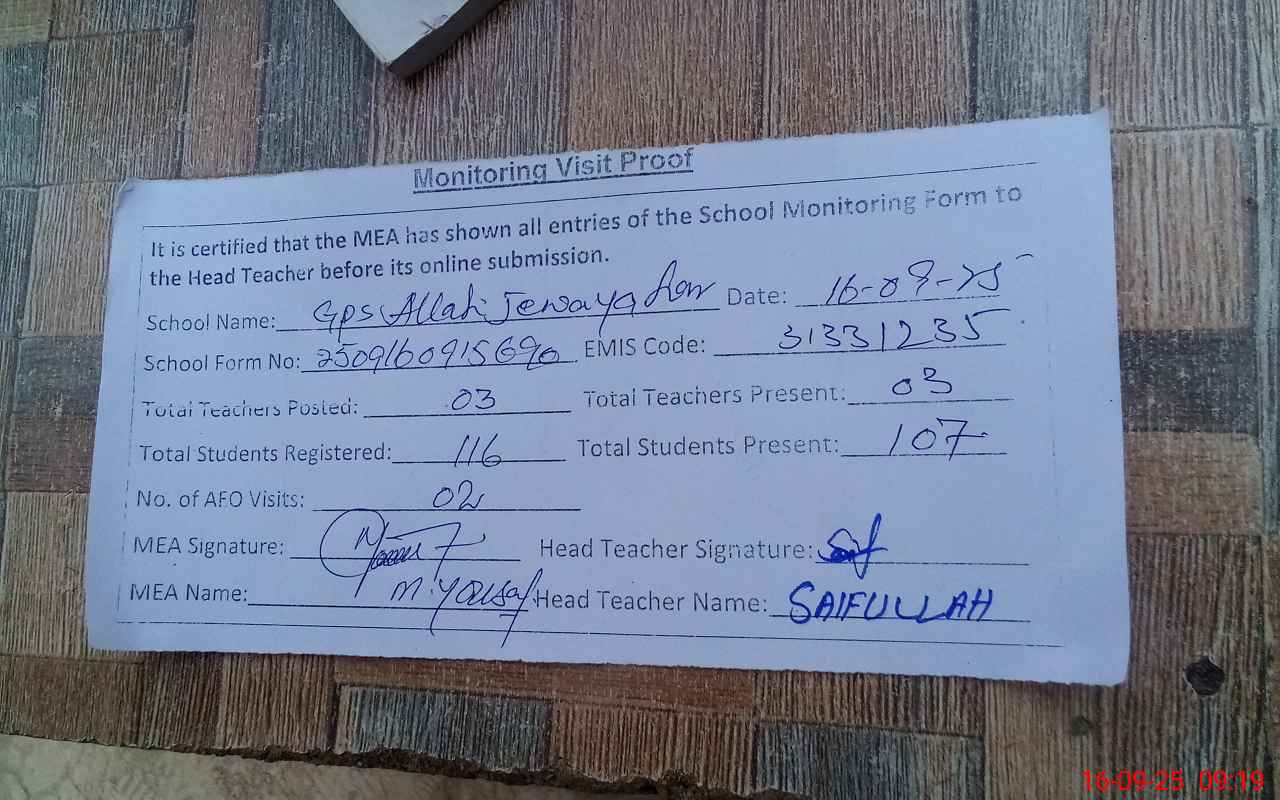 Monitoring Visit Proof
It is certified that the MEA has shown all entries of the School Monitoring Form to
the Head Teacher before its online submission.
School Name: GPS Allah Jewaya Date: 16-09-25
School Form No: 2509160915690 EMIS Code: 31331235
Total Teachers Posted: 03 Total Teachers Present: 03
Total Students Registered: 116 Total Students Present: 107
No. of AFO Visits: 02
MEA Signature: Head Teacher Signature: Saif
MEA Name: M. Yousaf Head Teacher Name: SAIFULLAH
16-09-25 09:19